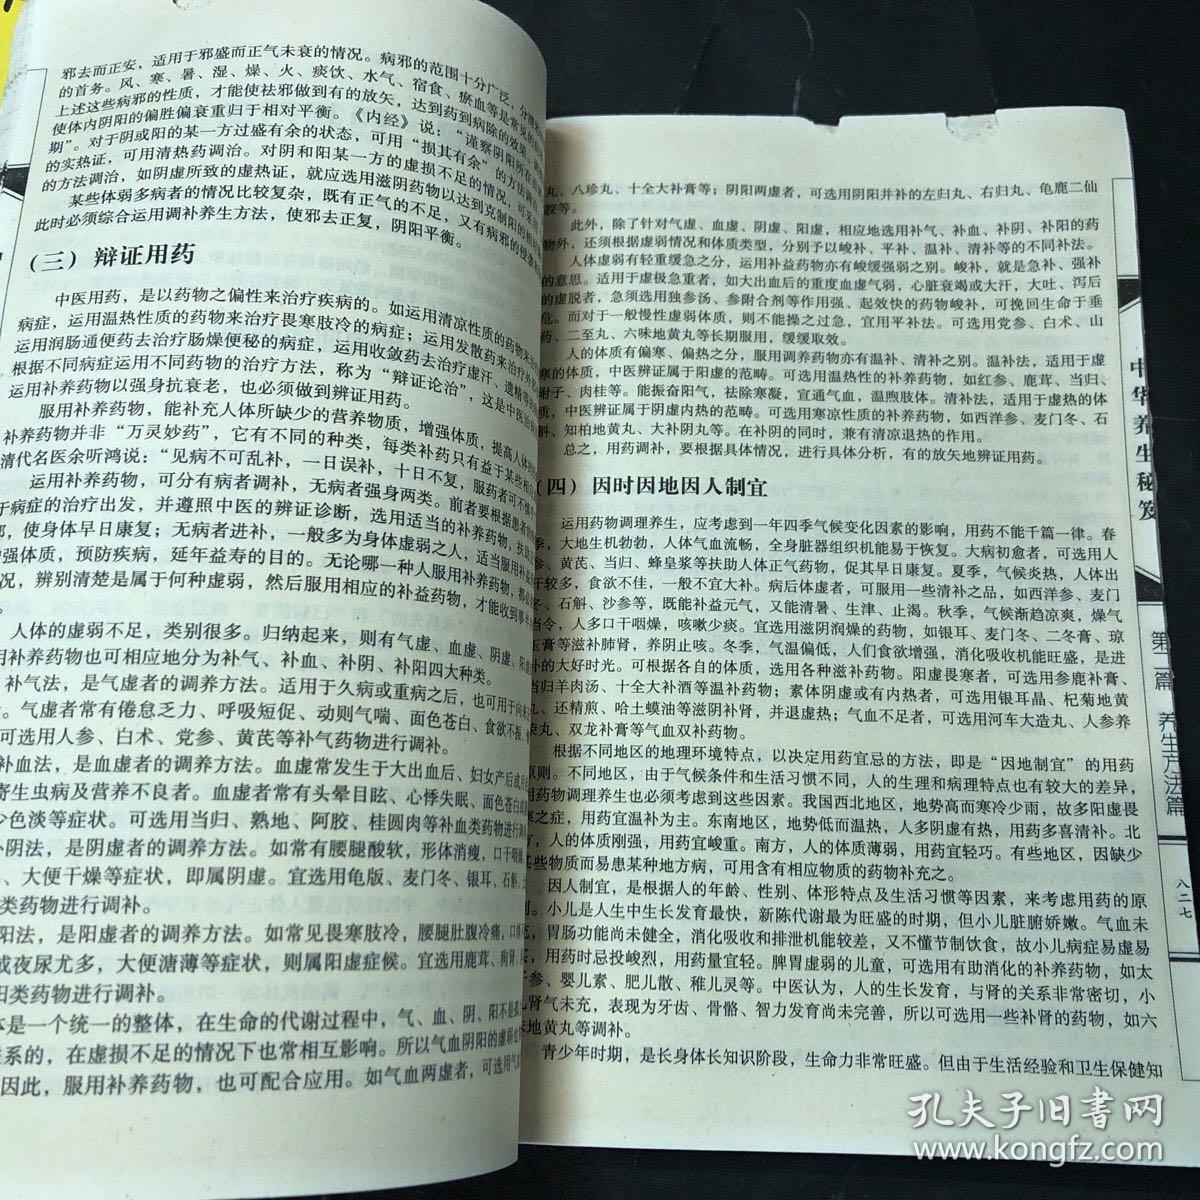 邪去而正安，适用于邪盛而正气未衰的情况。病邪的范围十分广泛，分清
的首务。风、寒、暑、湿、燥、火、痰饮、水气、宿食、瘀血等是常见的
上述这些病邪的性质，才能使祛邪做到有的放矢，达到药到病除的效果。
使体内阴阳的偏胜偏衰重归于相对平衡。《内经》说：“谨察阴阳所在
期”。对于阴或阳的某一方过盛有余的状态，可用“损其有余”的方法调
的实热证，可用清热药调治。对阴和阳某一方的虚损不足的情况，可采用
的方法调治，如阴虚所致的虚热证，就应选用滋阴药物以达到克制阳的相对
某些体弱多病者的情况比较复杂，既有正气的不足，又有病邪的侵袭
此时必须综合运用调补养生方法，使邪去正复，阴阳平衡。
（三）辩证用药
中医用药，是以药物之偏性来治疗疾病的。如运用清凉性质的药物来治
病症，运用温热性质的药物来治疗畏寒肢冷的病症；运用发散药来治疗外
运用润肠通便药去治疗肠燥便秘的病症，运用收敛药去治疗虚汗、遗精等
根据不同病症运用不同药物的治疗方法，称为“辩证论治”，这是中医
运用补养药物以强身抗衰老，也必须做到辨证用药。
服用补养药物，能补充人体所缺少的营养物质，增强体质，提高人体的
补养药物并非“万灵妙药”，它有不同的种类，每类补药只有益于某些相
清代名医余听鸿说：“见病不可乱补，一日误补，十日不复，服药者可不慎
运用补养药物，可分有病者调补，无病者强身两类。前者要根据患者的
于病症的治疗出发，并遵照中医的辨证诊断，选用适当的补养药物，扶助
邪，使身体早日康复；无病者进补，一般多为身体虚弱之人，适当服用补益
增强体质，预防疾病，延年益寿的目的。无论哪一种人服用补养药物，都必
况，辨别清楚是属于何种虚弱，然后服用相应的补益药物，才能收到事半
。
人体的虚弱不足，类别很多。归纳起来，则有气虚、血虚、阴虚、阳虚
用补养药物也可相应地分为补气、补血、补阴、补阳四大种类。
补气法，是气虚者的调养方法。适用于久病或重病之后，也可用于
。气虚者常有倦怠乏力、呼吸短促、动则气喘、面色苍白、食欲不振、
可选用人参、白术、党参、黄芪等补气药物进行调补。
补血法，是血虚者的调养方法。血虚常发生于大出血后、妇女产后或
寄生虫病及营养不良者。血虚者常有头晕目眩、心悸失眠、面色苍白
少色淡等症状。可选用当归、熟地、阿胶、桂圆肉等补血类药物进行调
补阴法，是阴虚者的调养方法。如常有腰腿酸软，形体消瘦，口干咽燥
、大便干燥等症状，即属阴虚。宜选用龟版、麦门冬、银耳、石斛、
类药物进行调补。
阳法，是阳虚者的调养方法。如常见畏寒肢冷，腰腿肚腹冷痛，口
或夜尿尤多，大便溏薄等症状，则属阳虚症候。宜选用鹿茸、狗肾、
阳类药物进行调补。
体是一个统一的整体，在生命的代谢过程中，气、血、阴、阳不是孤
联系的，在虚损不足的情况下也常相互影响。所以气血阴阳的虚弱也
因此，服用补养药物，也可配合应用。如气血两虚者，可选用气
丸、八珍丸、十全大补膏等；阴阳两虚者，可选用阴阳并补的左归丸、右归丸、龟鹿二仙
胶等。
此外，除了针对气虚、血虚、阴虚、阳虚，相应地选用补气、补血、补阴、补阳的药
物外，还须根据虚弱情况和体质类型，分别予以峻补、平补、温补、清补等的不同补法。
人体虚弱有轻重缓急之分，运用补益药物亦有峻缓强弱之别。峻补，就是急补、强补
的意思。适用于虚极急重者，如大出血后的重度血虚气弱，心脏衰竭或大汗，大吐、泻后
的虚脱者，急须选用独参汤、参附合剂等作用强、起效快的药物峻补，可挽回生命于垂
危。而对于一般慢性虚弱体质，则不能操之过急，宜用平补法。可选用党参、白术、山
药、二至丸、六味地黄丸等长期服用，缓缓取效。
人的体质有偏寒、偏热之分，服用调养药物亦有温补、清补之别。温补法，适用于虚
寒的体质，中医辨证属于阳虚的范畴。可选用温热性的补养药物，如红参、鹿茸、当归、
附子、肉桂等。能振奋阳气，祛除寒凝，宣通气血，温煦肢体。清补法，适用于虚热的体
质，中医辨证属于阴虚内热的范畴。可选用寒凉性质的补养药物，如西洋参、麦门冬、石
斛、知柏地黄丸、大补阴丸等。在补阴的同时，兼有清凉退热的作用。
总之，用药调补，要根据具体情况，进行具体分析，有的放矢地辨证用药。
（四）因时因地因人制宜
运用药物调理养生，应考虑到一年四季气候变化因素的影响，用药不能千篇一律。春
季，大地生机勃勃，人体气血流畅，全身脏器组织机能易于恢复。大病初愈者，可选用人
参、黄芪、当归、蜂皇浆等扶助人体正气药物，促其早日康复。夏季，气候炎热，人体出
汗较多，食欲不佳，一般不宜大补。病后体虚者，可服用一些清补之品，如西洋参、麦门
冬、石斛、沙参等，既能补益元气，又能清暑、生津、止渴。秋季，气候渐趋凉爽，燥气
当令，人多口干咽燥，咳嗽少痰。宜选用滋阴润燥的药物，如银耳、麦门冬、二冬膏、琼
玉膏等滋补肺肾，养阴止咳。冬季，气温偏低，人们食欲增强，消化吸收机能旺盛，是进
补的大好时光。可根据各自的体质，选用各种滋补药物。阳虚畏寒者，可选用参鹿补膏、
当归羊肉汤、十全大补酒等温补药物；素体阴虚或有内热者，可选用银耳晶、杞菊地黄
、还精煎、哈士蟆油等滋阴补肾，并退虚热；气血不足者，可选用河车大造丸、人参养
荣丸、双龙补膏等气血双补药物。
根据不同地区的地理环境特点，以决定用药宜忌的方法，即是“因地制宜”的用药
原则。不同地区，由于气候条件和生活习惯不同，人的生理和病理特点也有较大的差异，
用药物调理养生也必须考虑到这些因素。我国西北地区，地势高而寒冷少雨，故多阳虚畏
寒之症，用药宜温补为主。东南地区，地势低而温热，人多阴虚有热，用药多喜清补。北
方，人的体质刚强，用药宜峻重。南方，人的体质薄弱，用药宜轻巧。有些地区，因缺少
某些物质而易患某种地方病，可用含有相应物质的药物补充之。
因人制宜，是根据人的年龄、性别、体形特点及生活习惯等因素，来考虑用药的原
则。小儿是人生中生长发育最快，新陈代谢最为旺盛的时期，但小儿脏腑娇嫩。气血未
，胃肠功能尚未健全，消化吸收和排泄机能较差，又不懂节制饮食，故小儿病症易虚易
实，用药时忌投峻烈，用药量宜轻。脾胃虚弱的儿童，可选用有助消化的补养药物，如太
子参、婴儿素、肥儿散、稚儿灵等。中医认为，人的生长发育，与肾的关系非常密切，小
儿肾气未充，表现为牙齿、骨骼、智力发育尚未完善，所以可选用一些补肾的药物，如六
味地黄丸等调补。
青少年时期，是长身体长知识阶段，生命力非常旺盛。但由于生活经验和卫生保健知
中华养生秘笈
第二篇 养生方法篇
八二七
孔夫子旧书网
www.kongfz.com